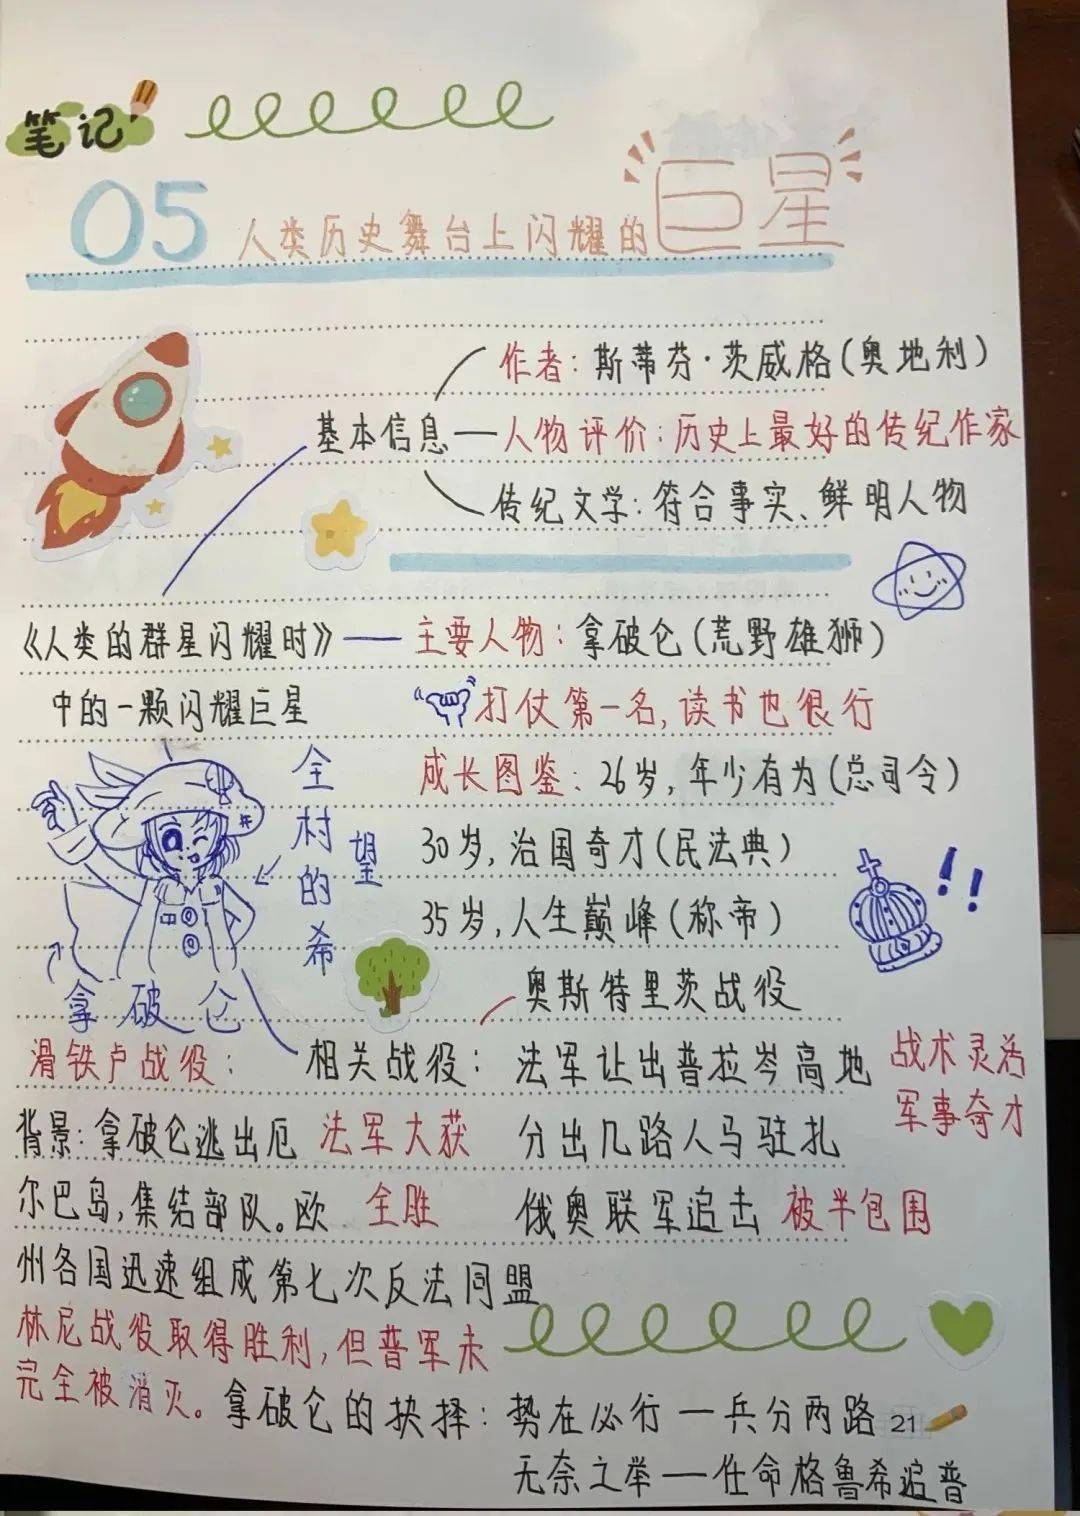 笔记
05 人类历史舞台上闪耀的巨星
作者：斯蒂芬·茨威格（奥地利）
基本信息——人物评价：历史上最好的传纪作家
传纪文学：符合事实、鲜明人物
《人类的群星闪耀时》——主要人物：拿破仑（荒野雄狮）
中的一颗闪耀巨星
打仗第一名，读书也很行
成长图鉴：26岁，年少有为（总司令）
30岁，治国奇才（民法典）
35岁，人生巅峰（称帝）
全村的希望
拿破仑
相关战役：
奥斯特里茨战役
法军让出普拉岑高地
战术灵活
军事奇才
分出几路人马驻扎
俄奥联军追击 被半包围
法军大获
全胜
滑铁卢战役：
背景：拿破仑逃出厄
尔巴岛，集结部队。欧
州各国迅速组成第七次反法同盟
林尼战役取得胜利，但普军未
完全被消灭。
拿破仑的抉择：势在必行——兵分两路
无奈之举——任命格鲁希追普
21